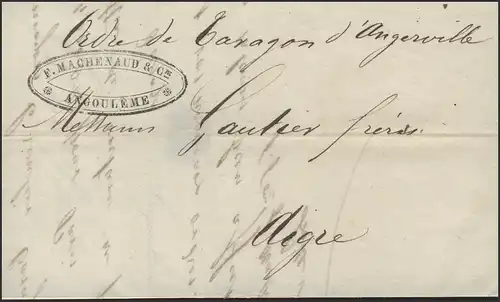 Ordre de Taragon d'Angerville
F. MACHENAUD & Cie
ANGOULÊME
Messieurs Gautier frères
Aigre